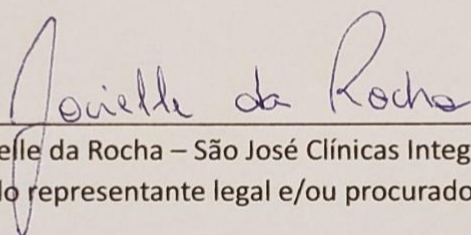 Jocielle da Rocha
elle da Rocha – São José Clínicas Integ
do representante legal e/ou procurado